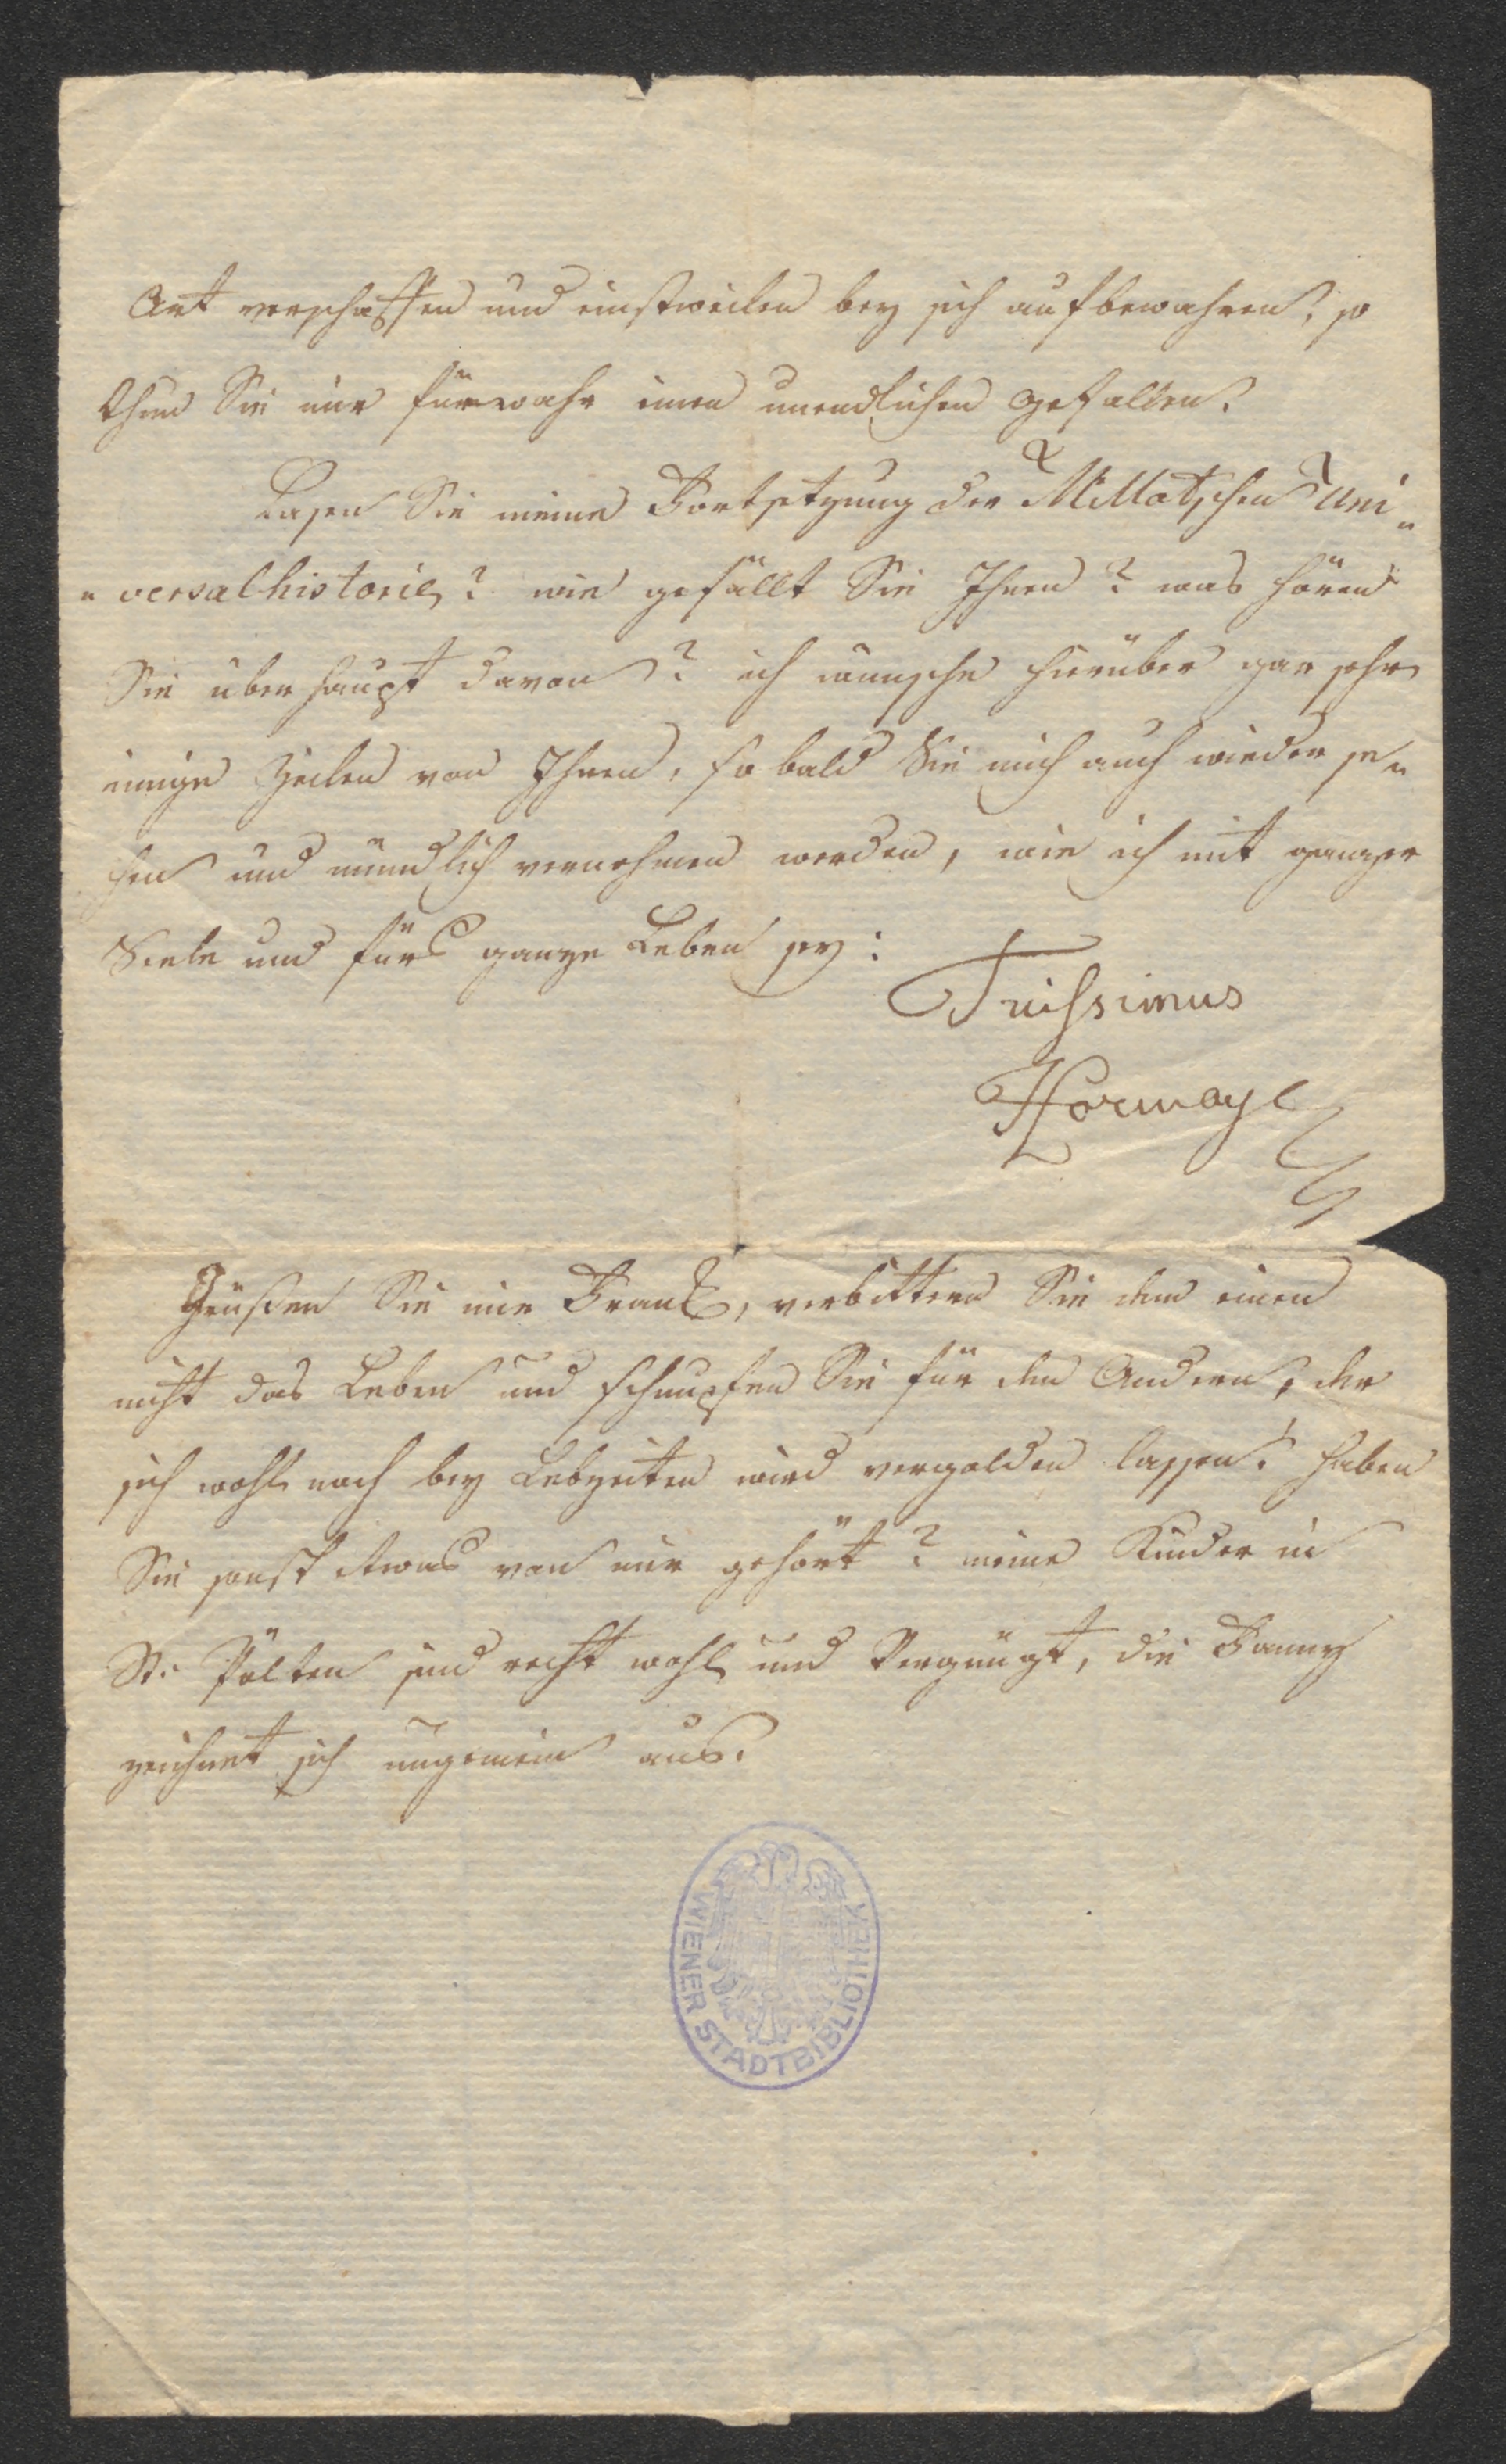 Art verschaffen und einstweilen bey sich aufbewahren, so
thun Sie mir fürwahr einen unendlichen Gefallen.
Lasen Sie meine Fortsetzung der Millotschen Uni„
„versalhistorie? wie gefällt Sie Ihnen? was hören
Sie überhaupt davon? ich wünsche hierüber gar sehr
einige Zeilen von Ihnen, so bald Sie mich auch wieder se„
hen und mündlich vernehmen werden, wie ich mit ganzer
Seele und fürs ganze Leben sey:
Tuissimus
Hormayr
Grüßen Sie mir, verbittern Sie dem einen
nicht das Leben und schnupfen Sie für den Andern, der
sich wohl noch bey Lebzeiten wird vergolden lassen. haben
Sie sonst etwas von mir gehört? meine Kinder in
St. Pölten sind recht wohl und Vergnügt, die Fanny
zeichnet sich ungemein aus.
WIENER STADTBIBLIOTHEK